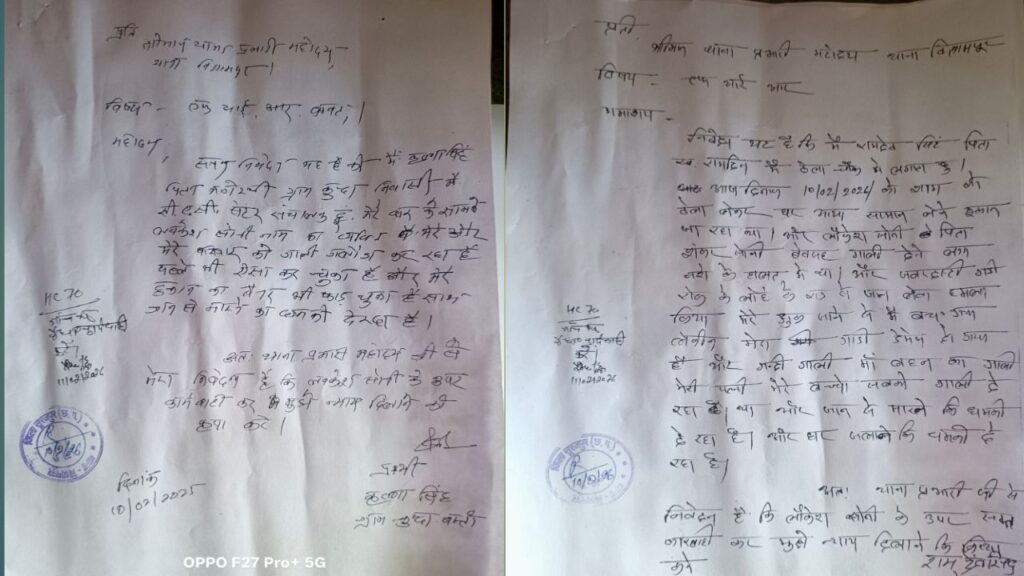 प्रति
श्रीमान थाना प्रभारी महोदय,
थाना
विषय - एफ. आई. आर. बाबत,।
महोदय,
निवेदन यह है की मैं कृष्णा सिंह
पिता ग्राम निवासी मैं
संचालक हूं, मेरे घर के सामने
लवकेश सोनी नाम का व्यक्ति मेरे और
मेरे को गाली गलौच कर रहा है
पहले भी ऐसा कर चुका है और मेरे
दुकान का भी फाड़ चुका है साथ
जान से मारने का धमकी दे रहा है।
अतः थाना प्रभारी महोदय जी से
मेरा निवेदन है कि लवकेश सोनी के उपर
कार्यवाही कर मुझे न्याय दिलाने की
कृपा करें।
HC 70
11/02/2026
10/2/26
दिनांक
10/02/2025
प्रार्थी
कृष्णा सिंह
ग्राम
OPPO F27 Pro+ 5G
प्रति,
श्रीमान थाना प्रभारी महोदय थाना
विषय - एफ आई आर
निवेदन यह है कि मैं रामदेव सिंह पिता
स्व. रामदिन मैं ठेला चौक में लगाता हूं।
आज दिनांक 10/02/2026 को शाम को
ठेला लेकर घर आया सामान लेने दुकान
जा रहा था। और लौकेश सोनी पिता
सोनी बेवजह गाली देने लगा
नशे के हालत में था। और जबरदस्ती गाड़ी
रोक के लोहे के राड से जान लेवा हमला
किया मेरे झुक जाने से मैं बच गया
लेकीन मेरा गाड़ी डेमेज हो गया
है और गन्दी गाली माँ बहन का गाली
मेरी पत्नी मेरे बच्चा सबको गाली दे
रहा है। था और जान से मारने कि धमकी
दे रहा है। और घर जलाने कि धमकी दे
रहा है।
अतः थाना प्रभारी जी से
निवेदन है कि लौकेश सोनी के उपर सख्त
कारवाही कर मुझे न्याय दिलाने कि
करे
HC 70
11/02/2026
10/2/26